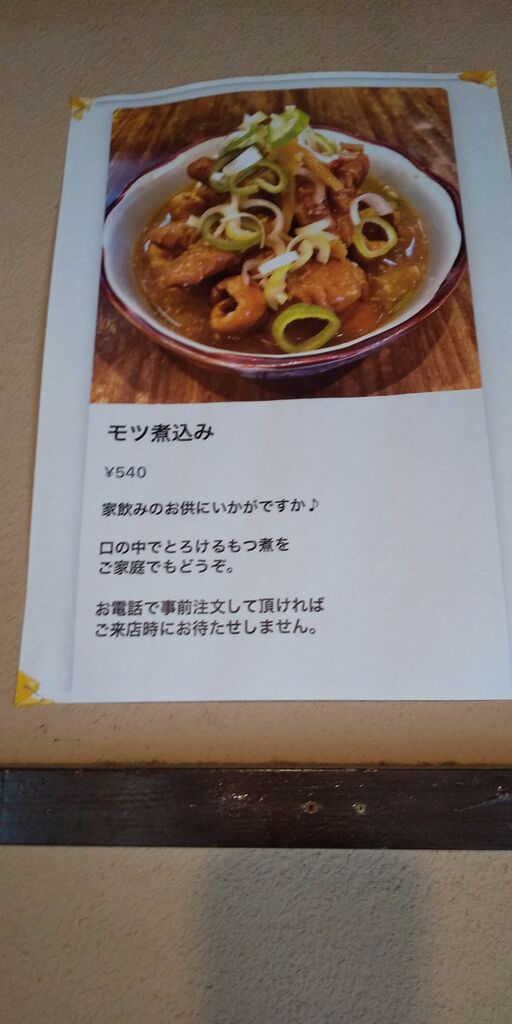 モツ煮込み
¥540
家飲みのお供にいかがですか♪
口の中でとろけるもつ煮を
ご家庭でもどうぞ。
お電話で事前注文して頂ければ
ご来店時にお待たせしません。